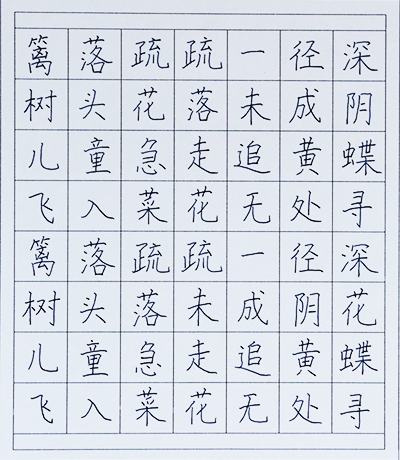 篱落疏疏一径深
树头花落未成阴
儿童急走追黄蝶
飞入菜花无处寻
篱落疏疏一径深
树头落未成阴花
儿童急走追黄蝶
飞入菜花无处寻